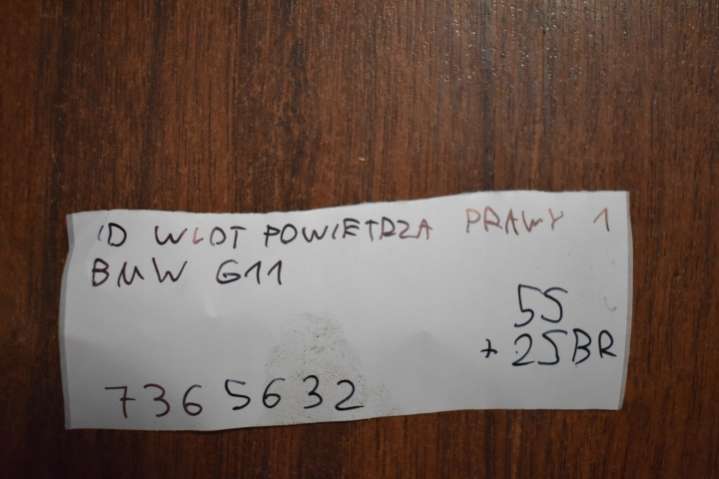 ID WLOT POWIETRZA PRAWY 1
BMW G11
5S
+ 2SBR
7365632